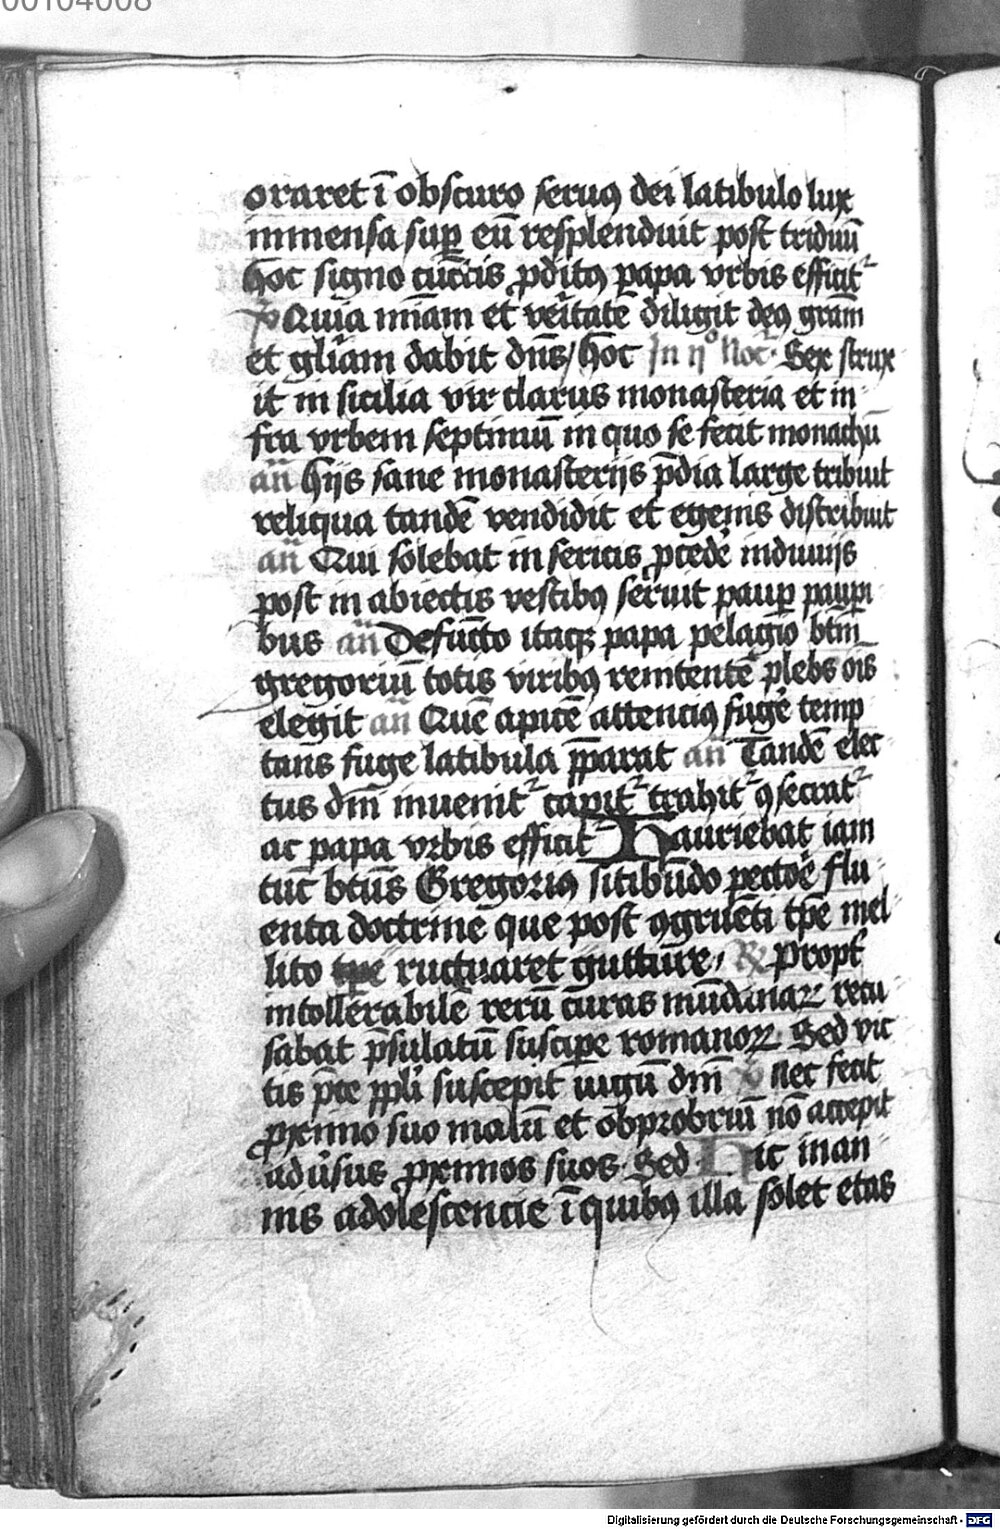 00104008
oraret ī obscuro seruꝯ dei latibulo lux
immensa suꝑ eū resplenduit post triduū
hoc signo cūctis ꝓditꝯ papa vrbis efficit᷑
℣ Quia mīam et veritatē diligit deꝯ grām
et glīam dabit dn̄s / hoc In ijº Noc̄ Sex strux
it in sicilia vir clarus monasteria et in
fra vrbem septimū in quo se fecit monachū
an̄ hijs sane monasterijs p̄dia large tribuit
reliqua tandē vendidit et egenis distribuit
an̄ Qui solebat in sericis ꝓcedē induuijs
post in abiectis vestibꝯ seruit pauꝑ pauꝑi
bus an̄ Defūcto itaqꝫ papa pelagio btm̄
gregoriū totis viribꝯ renitentē plebs oīs
elegit an̄ Quē apicē attenciꝯ fugē temp
tans fuge latibula p̄parat an̄ Tandē elec
tus dm̄ inuenit᷑ capit᷑ trahit᷑ ꝯsecrat᷑
ac papa vrbis efficit᷑ Hauriebat iam
tūc btūs Gregoriꝯ sitibūdo pectoē flu
enta doctrine que post ꝯgruēti tp̄e mel
lito tp̄e ructuaret gutture / ℟ Propt̄
intollerabilē rerū curas mūdanaꝝ recu
sabat p̄sulatū suscipe romanoꝝ Sed vic
tis p̄ce ppl̄i suscepit iugū dm̄ ℣ Nec fecit
ꝓximo suo malū et obprobriū nō accepit
aduˀsus ꝓximos suos Sed Hic in an
nis adolescencie ī quibꝯ illa solet etas
Digitalisierung gefördert durch die Deutsche Forschungsgemeinschaft - DFG